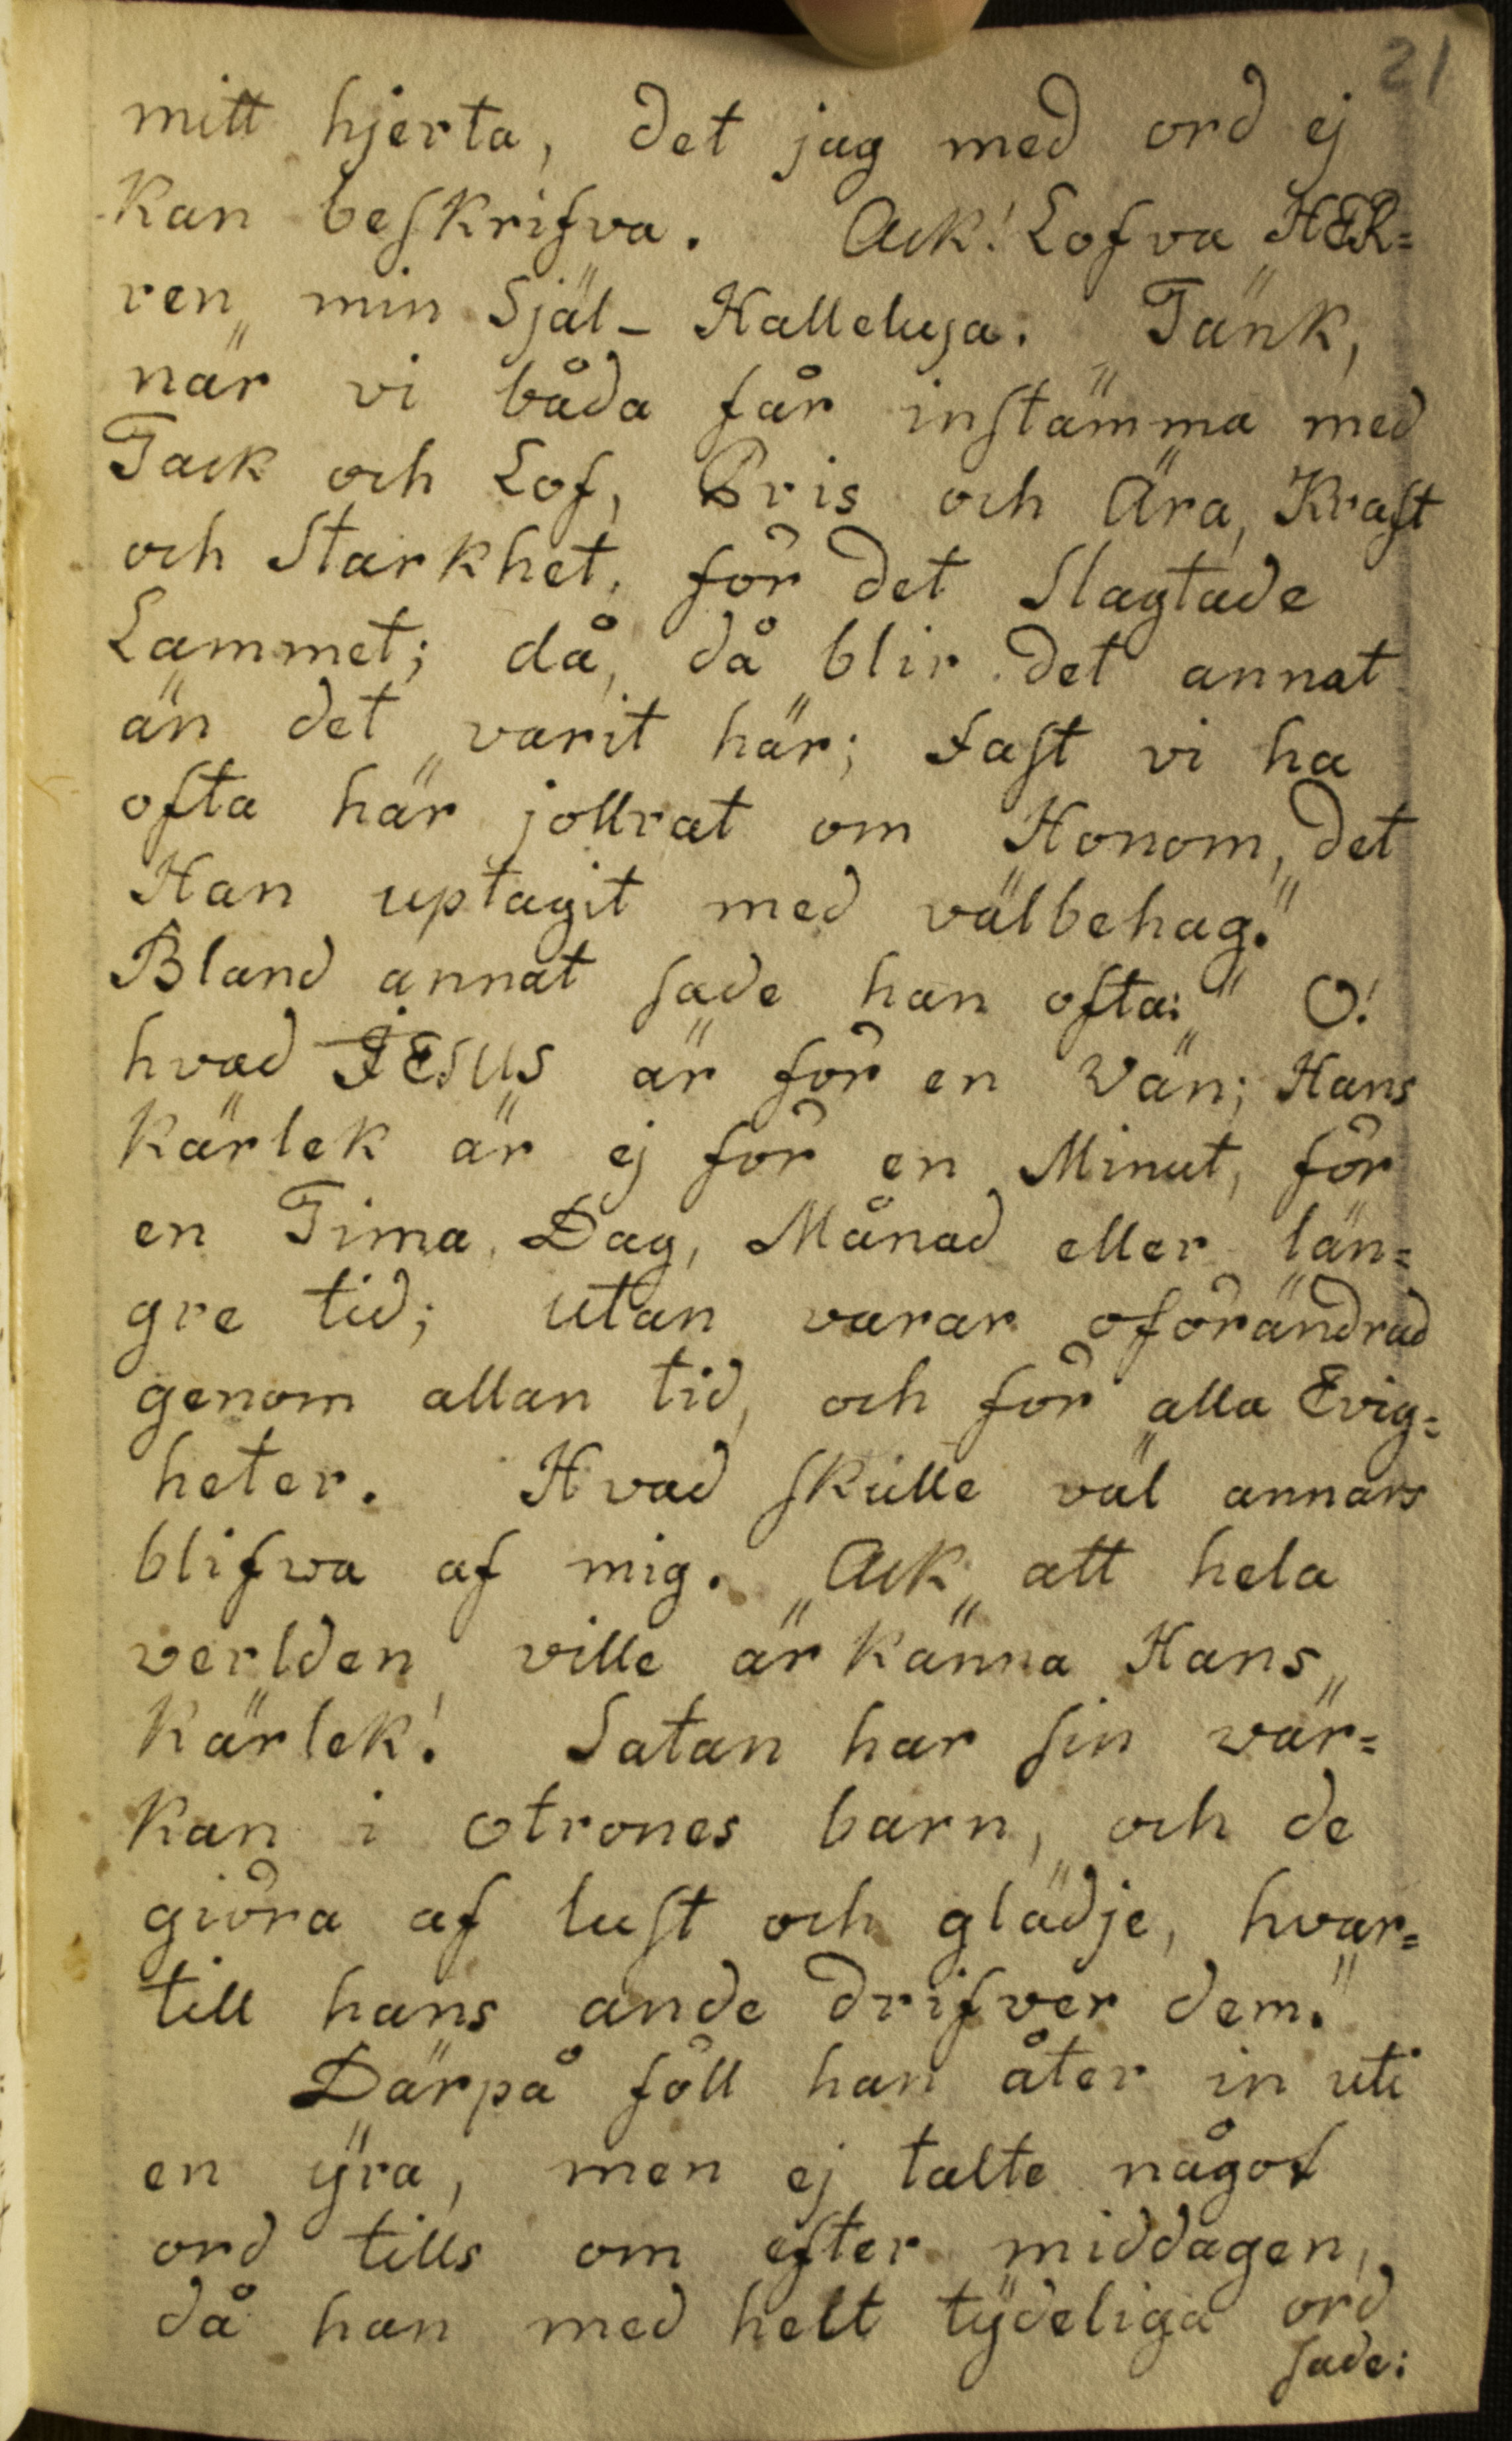 21
mitt hjerta, det jag med ord ej
kan beskrifva. Ack! Lofva HER=
ren min Själ - Halleluja. Tänk,
när vi båda får instämma med
Tack och Lof, Pris och Ära, Kraft
och Starkhet, för det Slagtade
Lammet; då, då blir det annat
än det varit här; Fast vi ha
ofta här jollrat om Honom, det
Han uptagit med välbehag."
Bland annat sade han ofta: " O!
hvad JESUS är för en Vän; Hans
Kärlek är ej för en Minut, för
en Tima, Dag, Månad eller län=
gre tid; utan varar oförändrad
genom allan tid, och för alla Evig=
heter. Hvad skulle väl annars
blifva af mig. „Ack„ att hela
verlden ville är känna Hans
Kärlek! Satan har sin vär=
kan i otrones barn, och de
giöra af lust och glädje, hvar=
till hans ande drifver dem."
Därpå föll han åter in uti
en ÿra, men ej talte något
ord tills om efter middagen,
då han med helt tÿdeliga ord
sade: